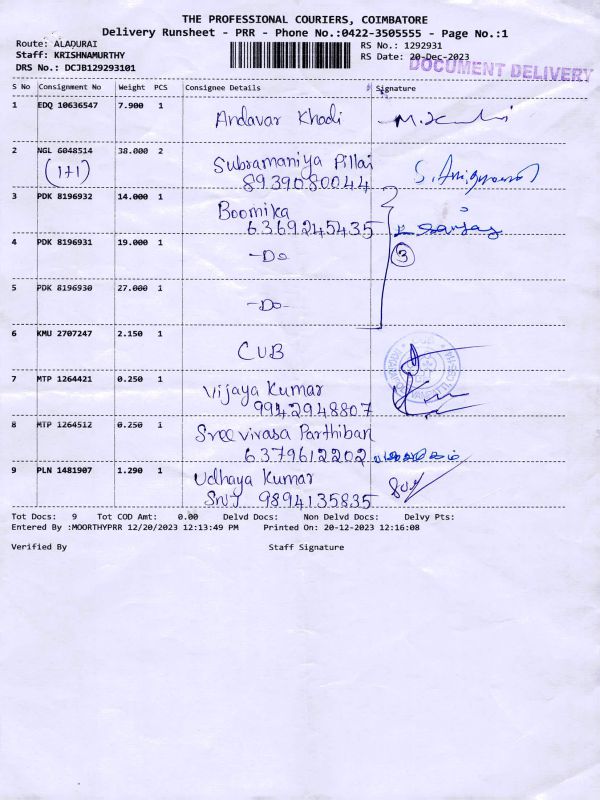 THE PROFESSIONAL COURIERS, COIMBATORE
Delivery Runsheet - PRR - Phone No.:0422-3505555 - Page No.:1
Route: ALADURAI
Staff: KRISHNAMURTHY
DRS No.: DCJB129293101
RS No.: 1292931
RS Date: 20-Dec-2023
DOCUMENT DELIVERY
S No Consignment No Weight PCS Consignee Details Signature
1 EDQ 10636547 7.900 1 Andavar Khadi
2 NGL 6048514 38.000 2 Subramaniya Pillai
(1+1) 8939080044
3 PDK 8196932 14.000 1 Boomika
6369245435
4 PDK 8196931 19.000 1 -Do 3
5 PDK 8196930 27.000 1 -Do-
6 KMU 2707247 2.150 1 CUB
7 MTP 1264421 0.250 1 Vijaya Kumar
9942948807
8 MTP 1264512 0.250 1 Sreevivasa Parthiban
6379612202
9 PLN 1481907 1.290 1 Udhaya Kumar
9894135835
Tot Docs: 9 Tot COD Amt: 0.00 Delvd Docs: Non Delvd Docs: Delvy Pts:
Entered By :MOORTHYPRR 12/20/2023 12:13:49 PM Printed On: 20-12-2023 12:16:08
Verified By Staff Signature